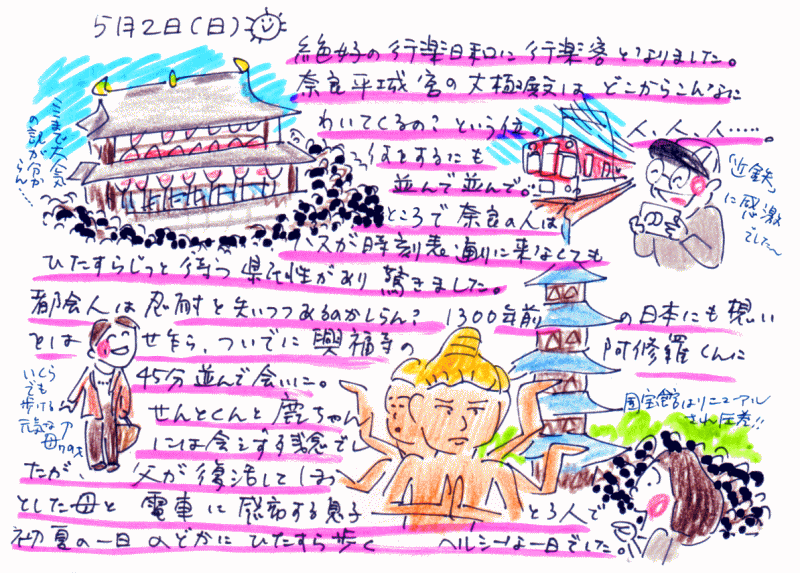 5月2日(日)
絶好の行楽日和に行楽客となりました。
奈良平城宮の大極殿は どこからこんなに
わいてくるの?という位の 人、人、人……。
何をするにも
並んで並んで。
ところで奈良の人は
バスが時刻表通りに来なくても
ひたすらじっと待つ県民性があり驚きました。
都会人は忍耐を失いつつあるのかしらん? 1300年前の日本にも想い
をはせながら、ついでに興福寺の阿修羅くんに
45分並んで会いに。
せんとくんと鹿ちゃん
には会えず残念でし
たが、父が復活してほっ
とした母と電車に感激する息子と3人で
初夏の一日のどかにひたすら歩く ヘルシーな一日でした。
ここまで大人気
の訳が分か
らん…
「近鉄」
に感激
でしたん
いくら
でも
歩ける
元気な
母
国宝館はリニューアル
され圧巻!!